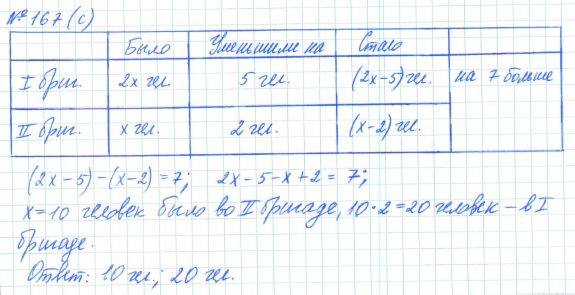 №167(с)
Было Уменьшили на Стало
I бриг. 2x чел. 5 чел. (2x-5) чел. на 7 больше
II бриг. x чел. 2 чел. (x-2) чел.
(2x-5)-(x-2)=7; 2x-5-x+2=7;
x=10 человек было во II бригаде, 10·2=20 человек – в I
бригаде.
Ответ: 10 чел.; 20 чел.